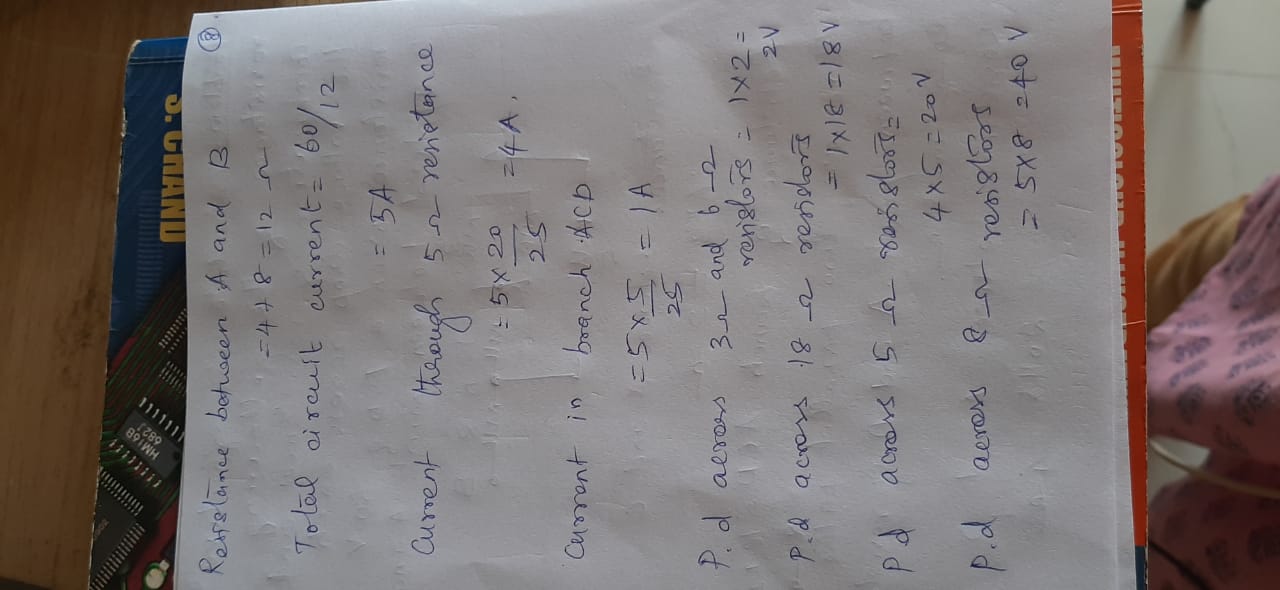 8
Resistance between A and B
= 4 + 8 = 12 Ω
Total circuit current = 60/12
= 5A
Current through 5 Ω resistance
= 5 × 20/25 = 4A.
Current in branch ACD
= 5 × 5/25 = 1A
P.d across 3Ω and 6 Ω
resistors = 1×2 =
2V
P.d across 18 Ω resistors
= 1×18 = 18V
P.d across 5 Ω resistors =
4×5 = 20V
P.d across 8 Ω resistors
= 5×8 = 40V
S. CHAND
HM168